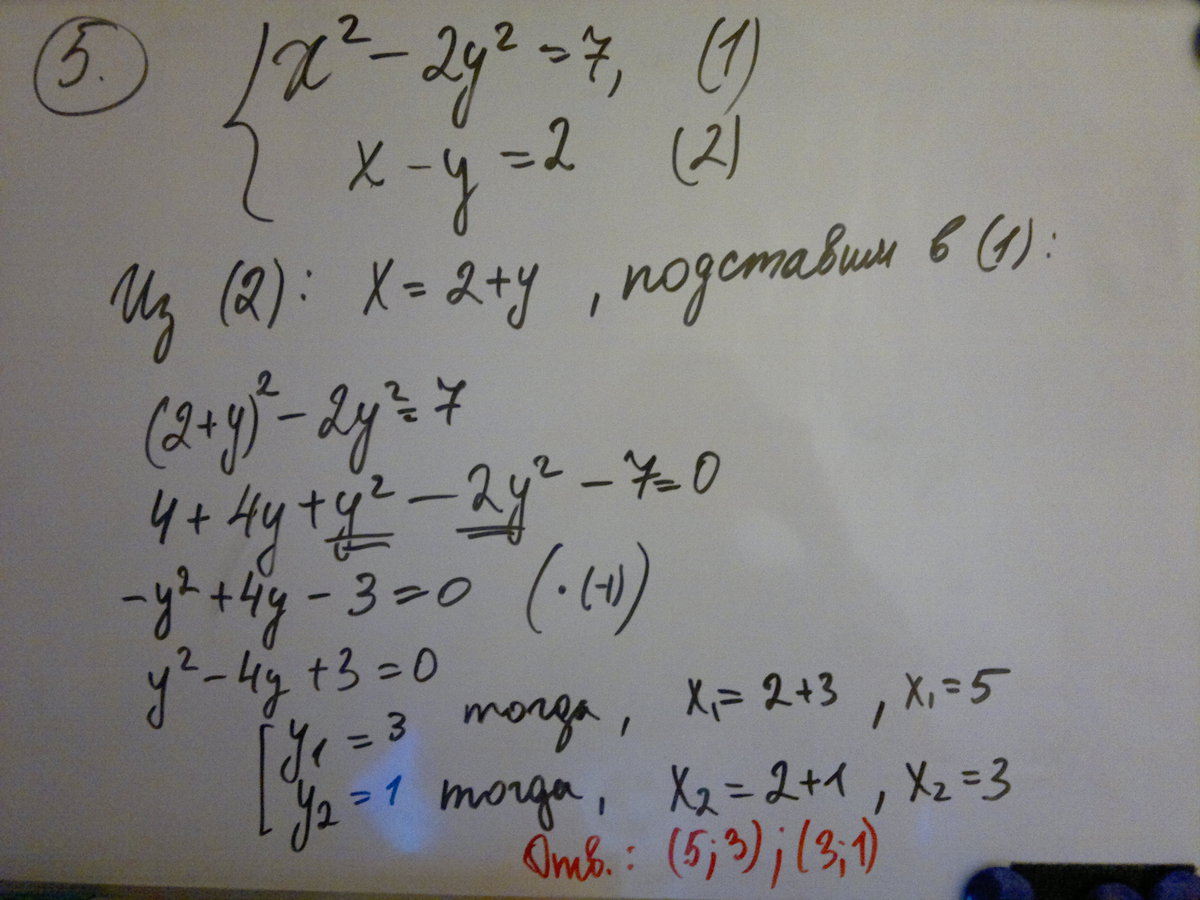 5. x² - 2y² = 7, (1)
x - y = 2 (2)
Из (2): x = 2+y , подставим в (1):
(2+y)² - 2y² = 7
4 + 4y + y² - 2y² - 7 = 0
-y² + 4y - 3 = 0 (·(-1))
y² - 4y + 3 = 0
y₁ = 3 тогда, x₁ = 2+3 , x₁ = 5
y₂ = 1 тогда, x₂ = 2+1 , x₂ = 3
Отв.: (5;3) ; (3;1)